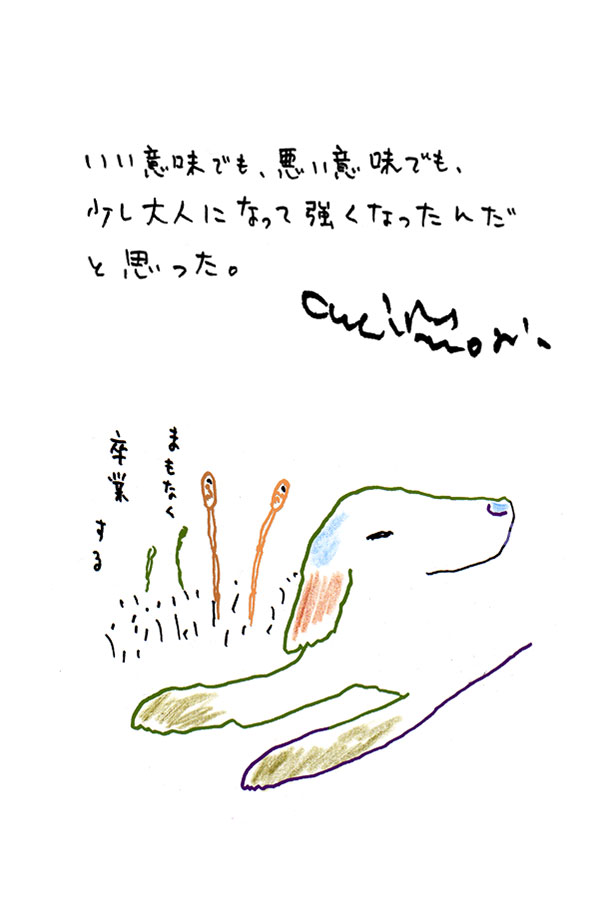 いい意味でも、悪い意味でも、
少し大人になって強くなったんだ
と思った。
まもなく
卒業
する